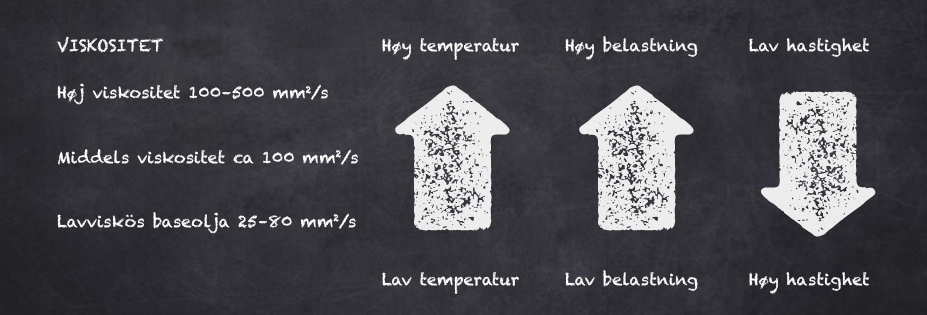 VISKOSITET
Høy temperatur
Høy belastning
Lav hastighet
Høj viskositet 100-500 mm²/s
Middels viskositet ca 100 mm²/s
Lavviskös baseolja 25-80 mm²/s
Lav temperatur
Lav belastning
Høy hastighet